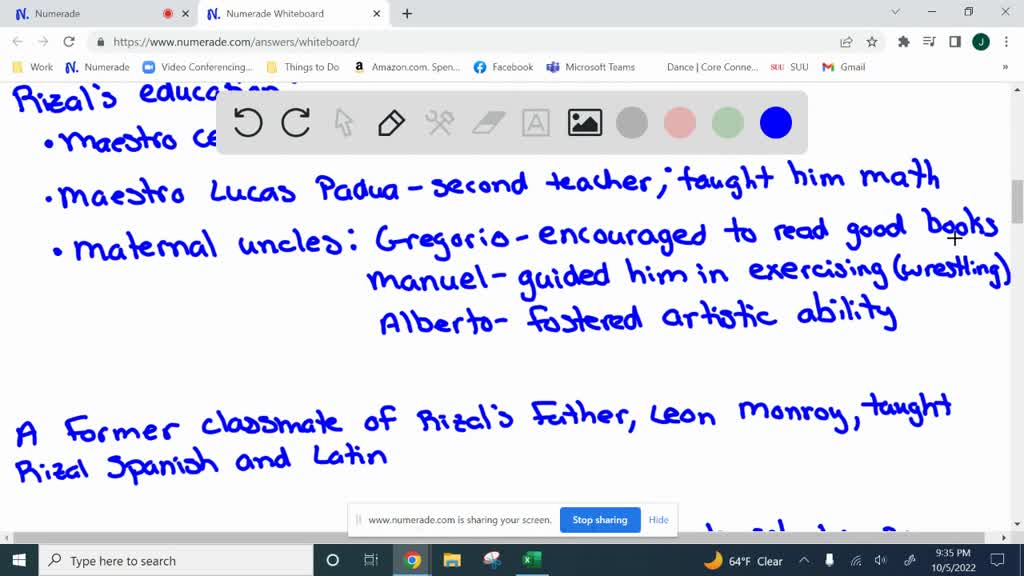 Numerade
Numerade Whiteboard
https://www.numerade.com/answers/whiteboard/
J
Work
Numerade
Video Conferencing...
Things to Do
Amazon.com. Spen...
Facebook
Microsoft Teams
Dance | Core Conne...
SUU SUU
Gmail
»
Rizal's education:
• Maestro ce
A
• Maestro Lucas Padua - second teacher; taught him math
• maternal uncles: Gregorio - encouraged to read good books
manuel - guided him in exercising (wrestling)
Alberto - fostered artistic ability
A Former classmate of Rizal's Father, Leon Monroy, taught
Rizal Spanish and Latin
www.numerade.com is sharing your screen.
Stop sharing
Hide
Type here to search
64°F Clear
9:35 PM
10/5/2022